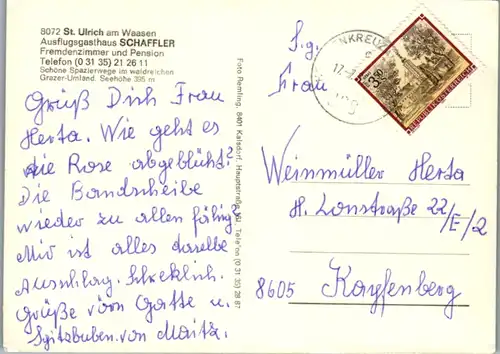 8072 St. Ulrich am Waasen
Ausflugsgasthaus SCHAFFLER
Fremdenzimmer und Pension
Telefon (0 31 35) 21 26 11
Schöne Spazierwege im waldreichen
Grazer-Umland. Seehöhe 395 m
Grüß Dich Frau
Herta. Wie geht es
die Rose abgeblüht?
Die Bandscheibe
wieder zu allen fähig?
Mir ist alles daselbe
Ausschlag. Schreklich.
Grüße von Gatte u.
Spitzbuben. von
Foto Roemling, 8401 Kalsdorf, Hauptstraße Telefon (0 31 35) 26 87
S.g.
Frau
NKREUZ
3.50
REPUBLIK ÖSTERREICH
Weinmüller Herta
H. Lonstraße 22/E/2
8605 Kapfenberg